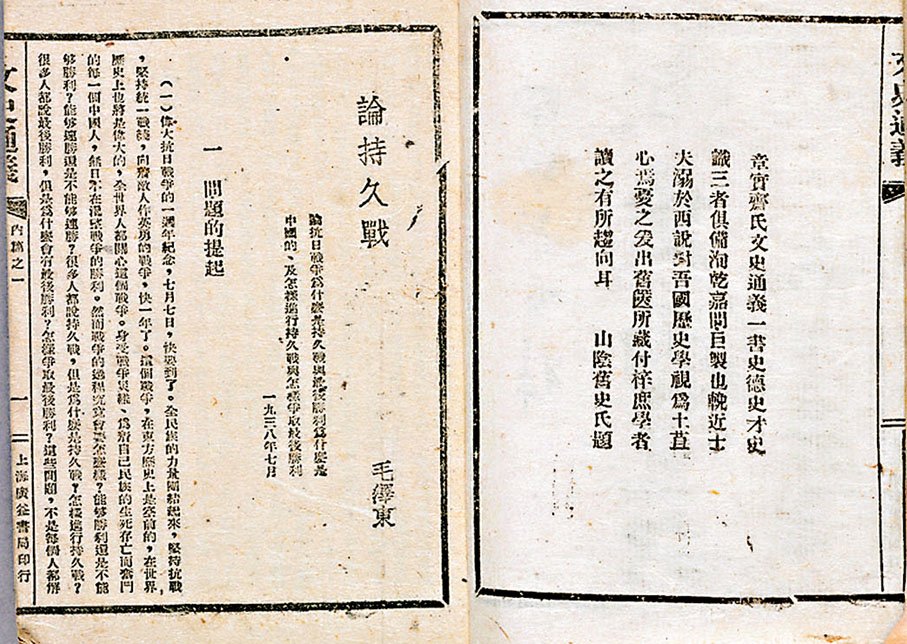 文史通義
章實齊氏文史通義一書史德史才史
識三者俱備洵乾嘉間巨製也輓近士
夫溺於西說對吾國歷史學視為土苴
心焉憂之爰出舊篋所藏付梓庶學者
讀之有所趨向耳　山陰舊史氏題
論持久戰
論抗日戰爭為什麼是持久戰與最後勝利為什麼是
中國的、及怎樣進行持久戰與怎樣爭取最後勝利
一九三八年七月
毛澤東
一　問題的提起
（一）偉大抗日戰爭的一週年紀念，七月七日，快要到了。全民族的力量團結起來，堅持抗戰
，堅持統一戰綫，向着敵人作英勇的戰爭，快一年了。這個戰爭，在東方歷史上是空前的，在世界
歷史上也將是偉大的，全世界人都關心這個戰爭。身受戰爭災樣、為着自己民族的生死存亡而奮鬥
的每一個中國人，無日不在渴望戰爭的勝利。然而戰爭的過程究竟會要怎麼樣？能够勝利還是不能
够勝利？能够速勝還是不能够速勝？很多人都說持久戰，但是為什麼是持久戰？怎樣進行持久戰？
很多人都說最後勝利，但是為什麼會有最後勝利？怎樣爭取最後勝利？這些問題，不是每個人都解
文史通義
內篇之一
一
上海廣益書局印行